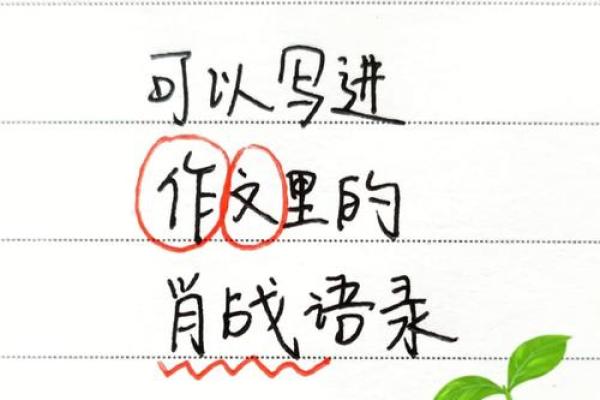 可以写进
作文里的
肖战语录